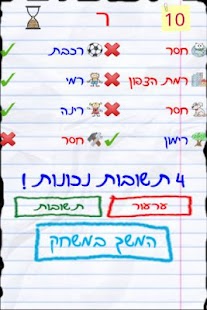 ר 10
חסר רכבת
רמת הצפון רמי
חסר רינה
רימון חסר
4 תשובות נכונות !
ערעור תשובות
המשך במשחק